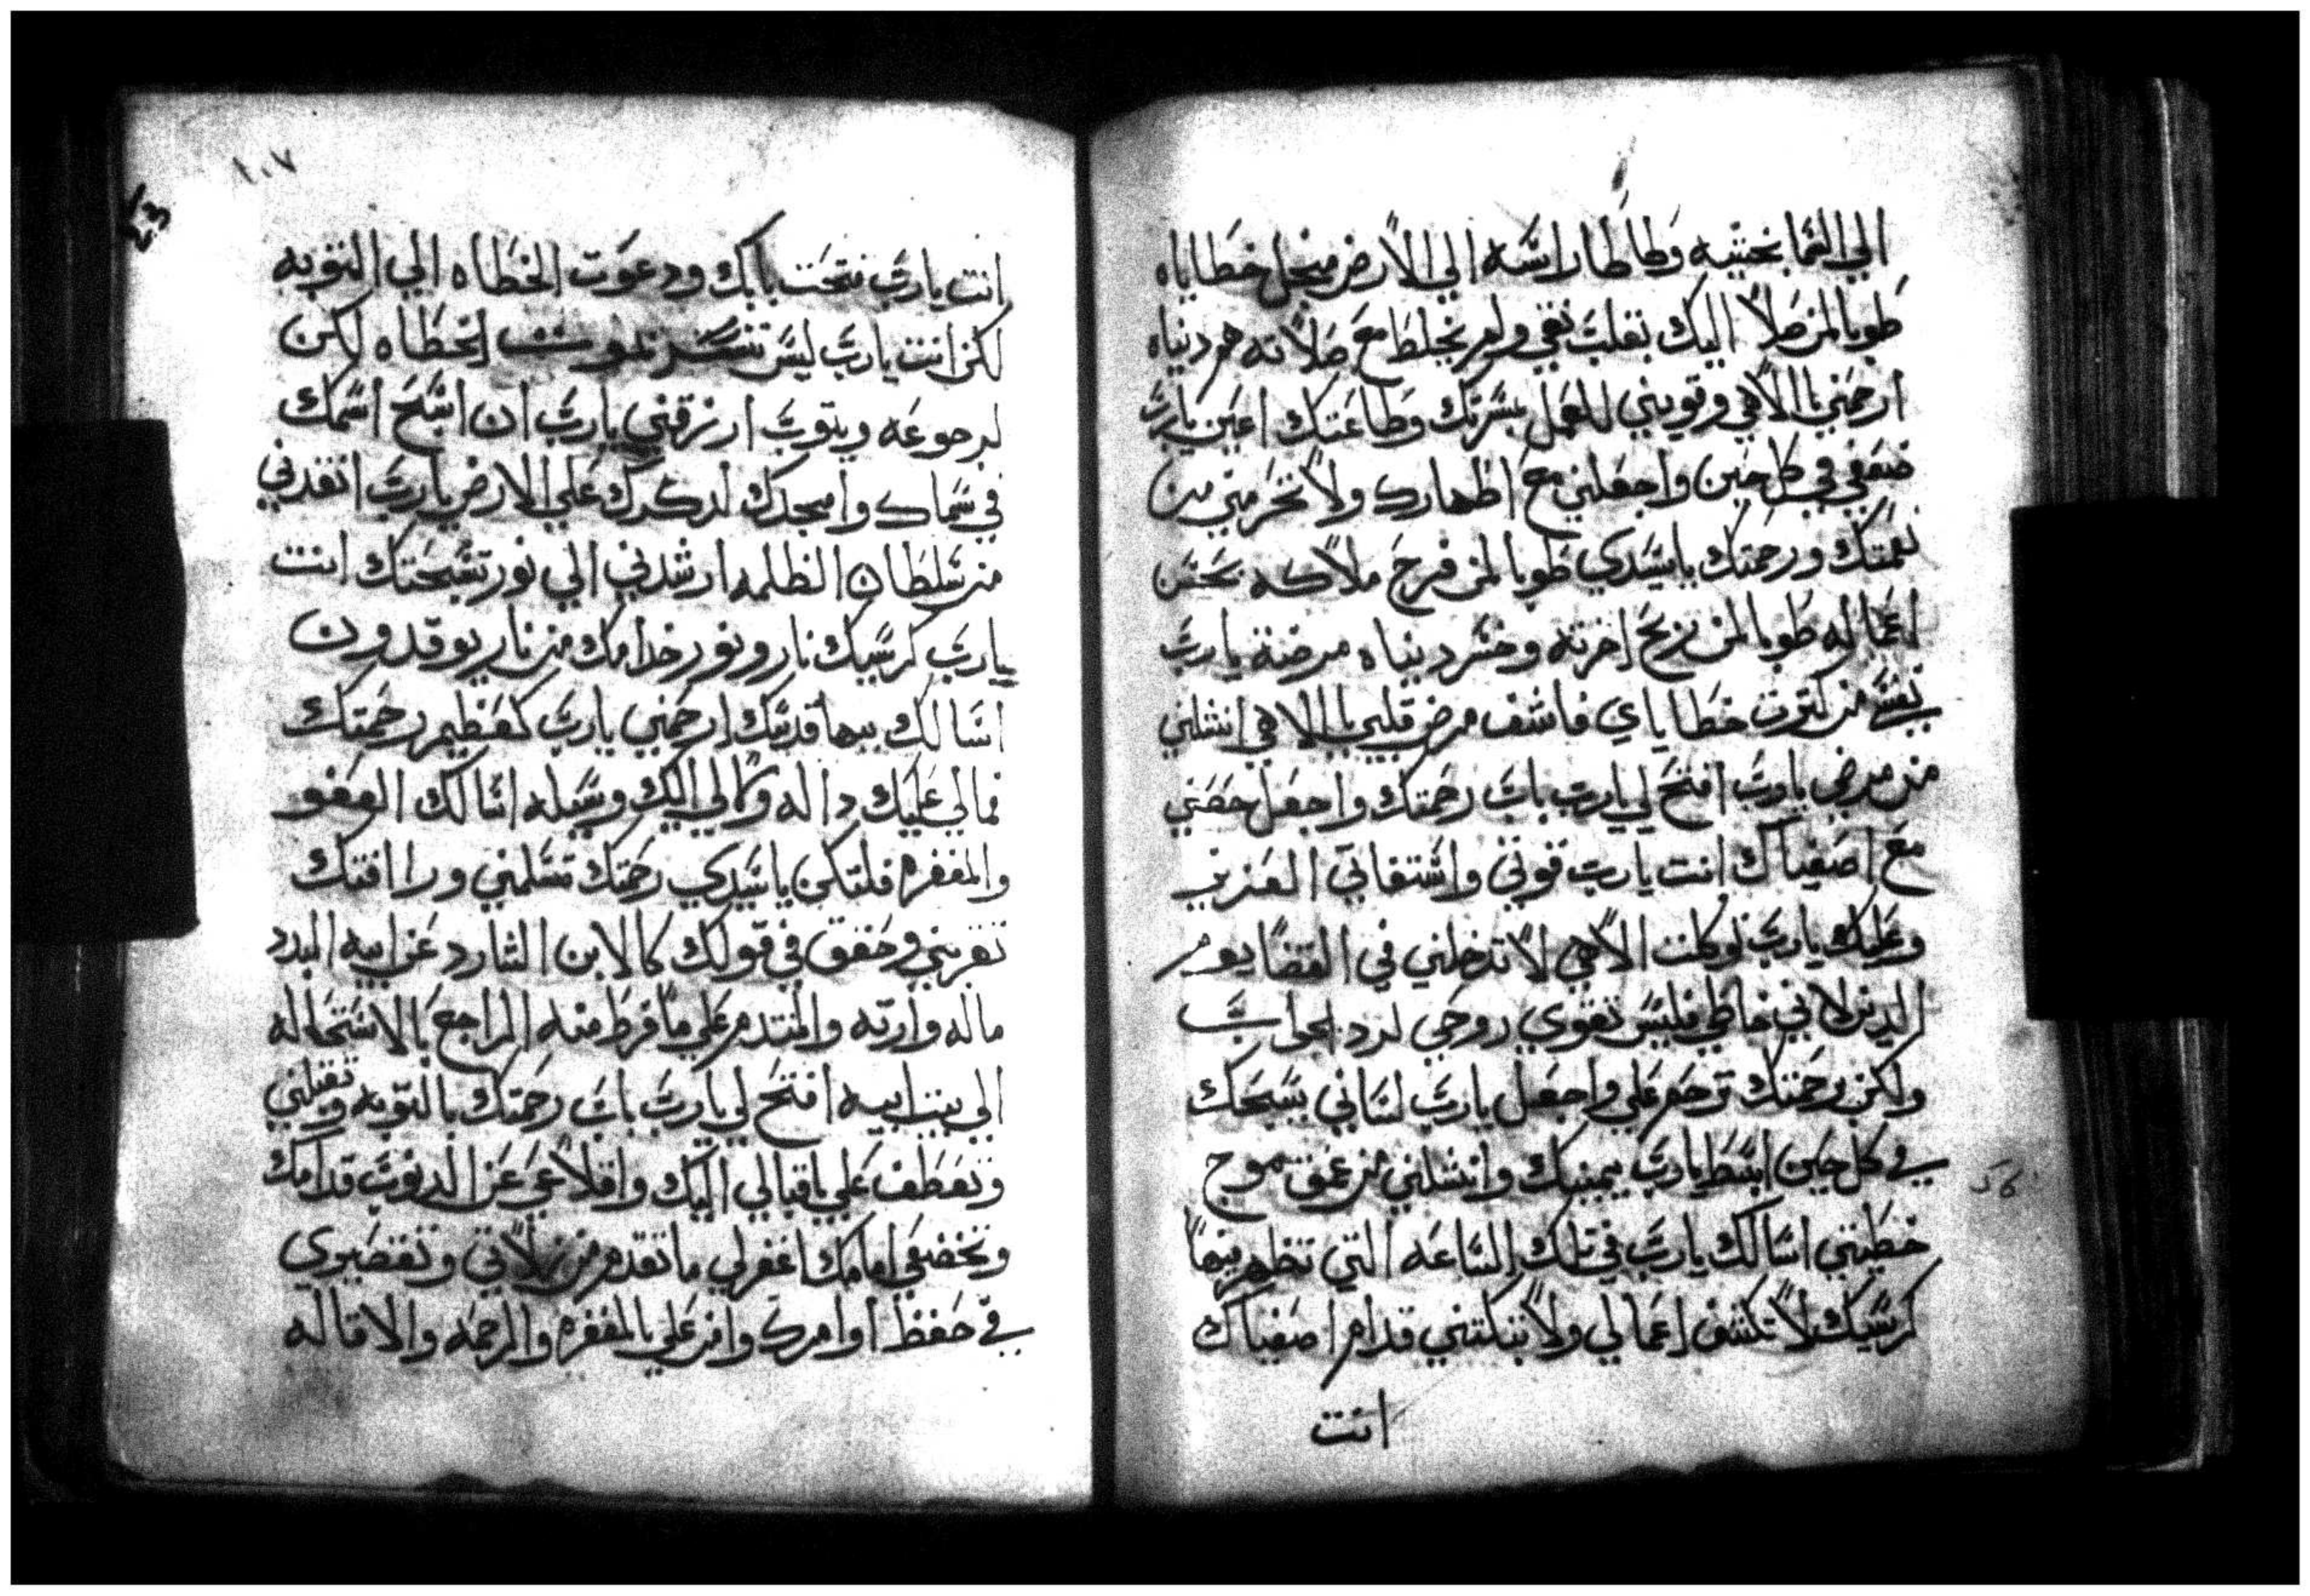 الي السما بخيتيه وطاطا راسه الي الارض ميجل خطاياه
طوبا لمن صلا اليك بقلب نقي ولم يخلط مع صلاته هم دنياه
ارحمني يا الاهي وقويني للعمل بسرتك وطاعتك اعين يارب
ضعفي في كل حين واجعلني مع اطهارك ولا تحرمني من
نعمتك ورحمتك ياسيدي طوبا لمن فرح ملاكه بحسن
اعماله طوبا لمن ربح اخرته وخسر دنياه مرضة يارب
نفسي من كترت خطاياي فاشف مرض قلبي يا الاهي انشلني
من مرضي يارب افتح لي يارب باب رحمتك واجعل حصني
مع اصفياك انت يارب قوتي واشتغاتي العزيز
وعليك يارب توكلت الاهي لا تدخلني في القضا يوم
الدين لاني خاطي فليس تقوي روحي لرد الجواب
ولكن رحمتك ترحم علي واجعل يارب لساني يسبحك
في كل حين ابسط يارب يمينك وانشلني من عمق موج
خطيتي اسالك يارب في تلك الساعه التي تظهر فيها
كرسيك لا تكشف اعمالي ولا تبكتني قدام اصفياك
انت
١٠٧
انت يارب فتحت بابك ودعوت الخطاه الي التوبه
لكن انت يارب ليس تشا موت الخطاه لكن
لرجوعه ويتوب ارزقني يارب ان اسبح اسمك
في سماك وامجدك لدكرك علي الارض يارب انقدني
من سلطان الظلمه ارشدني الي نور تسبحتك انت
يارب كرسيك نار ونور خدامك من نار يوقدون
اسالك ببها قدسك ارحمني يارب كعظيم رحمتك
فمالي عليك داله ولا لي اليك وسيله اسالك العفو
والمغفره فلتكن ياسيدي رحمتك تشملني ورافتك
تقربني وحقق في قولك كالابن الشارد عن ابيه المبدد
ماله وارته والمتندم علي ما فرط منه الراجع بالاستحاله
الي بيت ابيه افتح لي يارب باب رحمتك بالتوبه وتقبلني
وتعطف علي باقبالي اليك واقلاعي عن الدنوب قدامك
وتخضعي امامك اغفر لي ما تقدم من زلاتي وتقصيري
في حفظ اوامرك وامن علي بالمغفره والرحمه والاقاله